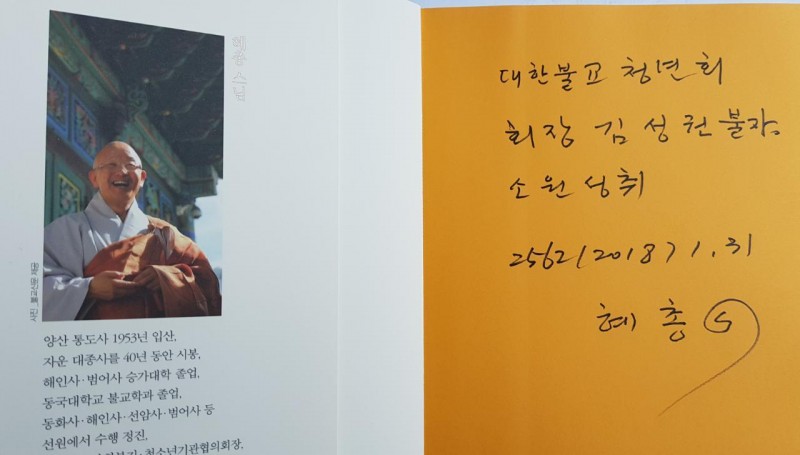 혜총 스님
사진_불교신문 제공
양산 통도사 1953년 입산,
자운 대종사를 40년 동안 시봉,
해인사·범어사 승가대학 졸업,
동국대학교 불교학과 졸업,
동화사·해인사·선암사·범어사 등
선원에서 수행 정진,
청소년기관협의회장,
대한불교 청년회
회장 김성권불자
소원성취
2562(2018) 1. 31
혜총